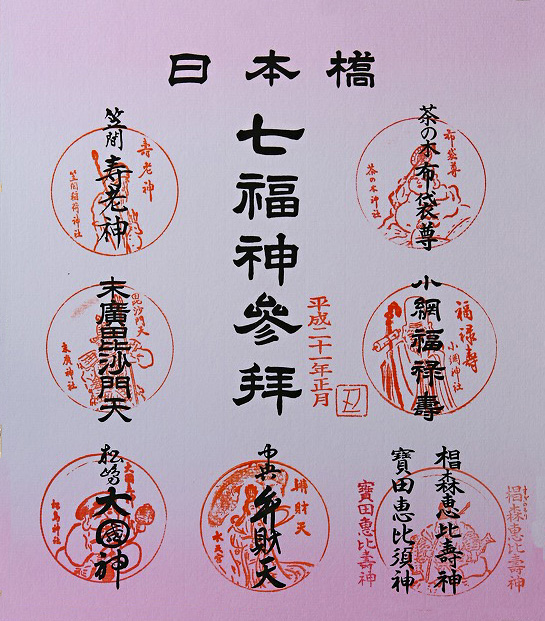 日本橋
七福神參拜
平成二十一年正月
丑
茶の木布袋尊
布袋尊
茶の木神社
小網福禄壽
福禄寿
小網神社
椙森恵比壽神
寶田恵比須神
椙森恵比壽神
寶田恵比壽神
中央弁財天
辨財天
水天宮
笠間寿老神
寿老神
笠間稲荷神社
末廣毘沙門天
毘沙門天
末廣神社
松嶋大國神
大國神
松島神社